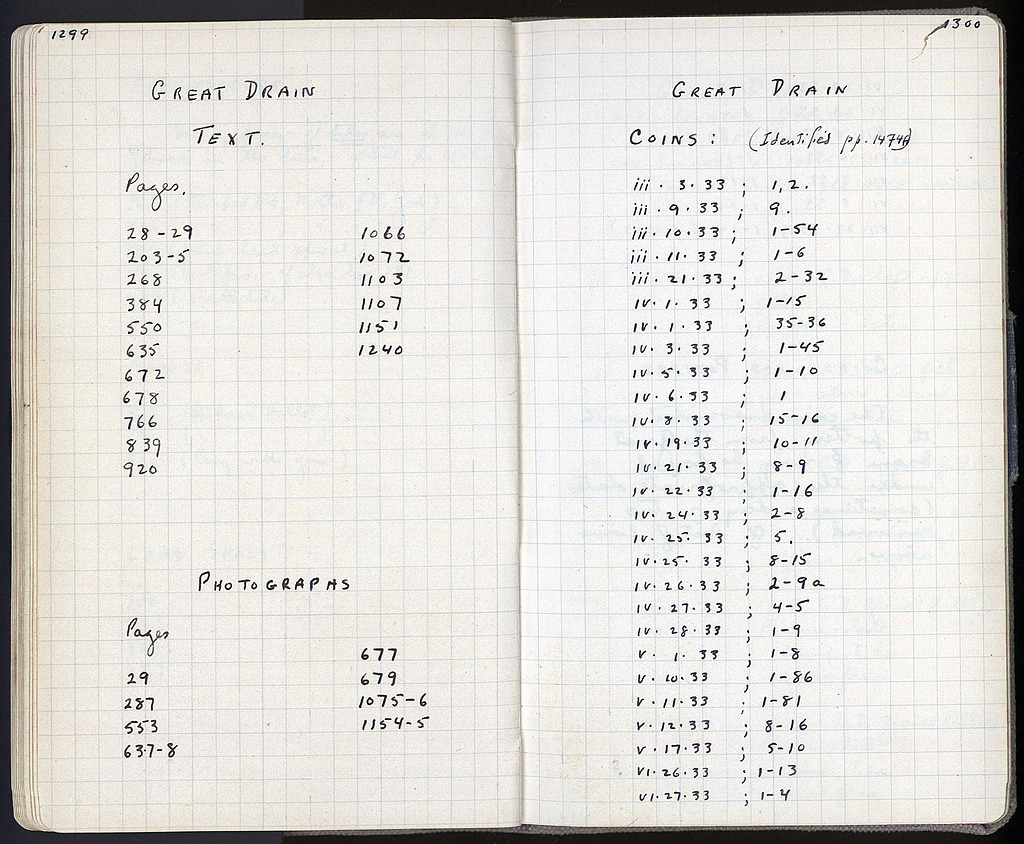 1299
GREAT DRAIN
TEXT.
Pages.
28-29
203-5
268
384
550
635
672
678
766
839
920
1066
1072
1103
1107
1151
1240
PHOTOGRAPHS
Pages
29
287
553
637-8
677
679
1075-6
1154-5
1300
GREAT DRAIN
COINS: (Identified pp. 1474ff)
iii · 3 · 33 ; 1, 2.
iii · 9 · 33 ; 9.
iii · 10 · 33 ; 1-54
iii · 11 · 33 ; 1-6
iii · 21 · 33 ; 2-32
iv · 1 · 33 ; 1-15
iv · 1 · 33 ; 35-36
iv · 3 · 33 ; 1-45
iv · 5 · 33 ; 1-10
iv · 6 · 33 ; 1
iv · 8 · 33 ; 15-16
iv · 19 · 33 ; 10-11
iv · 21 · 33 ; 8-9
iv · 22 · 33 ; 1-16
iv · 24 · 33 ; 2-8
iv · 25 · 33 ; 5.
iv · 25 · 33 ; 8-15
iv · 26 · 33 ; 2-9a
iv · 27 · 33 ; 4-5
iv · 28 · 33 ; 1-9
v · 1 · 33 ; 1-8
v · 10 · 33 ; 1-86
v · 11 · 33 ; 1-81
v · 12 · 33 ; 8-16
v · 17 · 33 ; 5-10
vi · 26 · 33 ; 1-13
vi · 27 · 33 ; 1-4